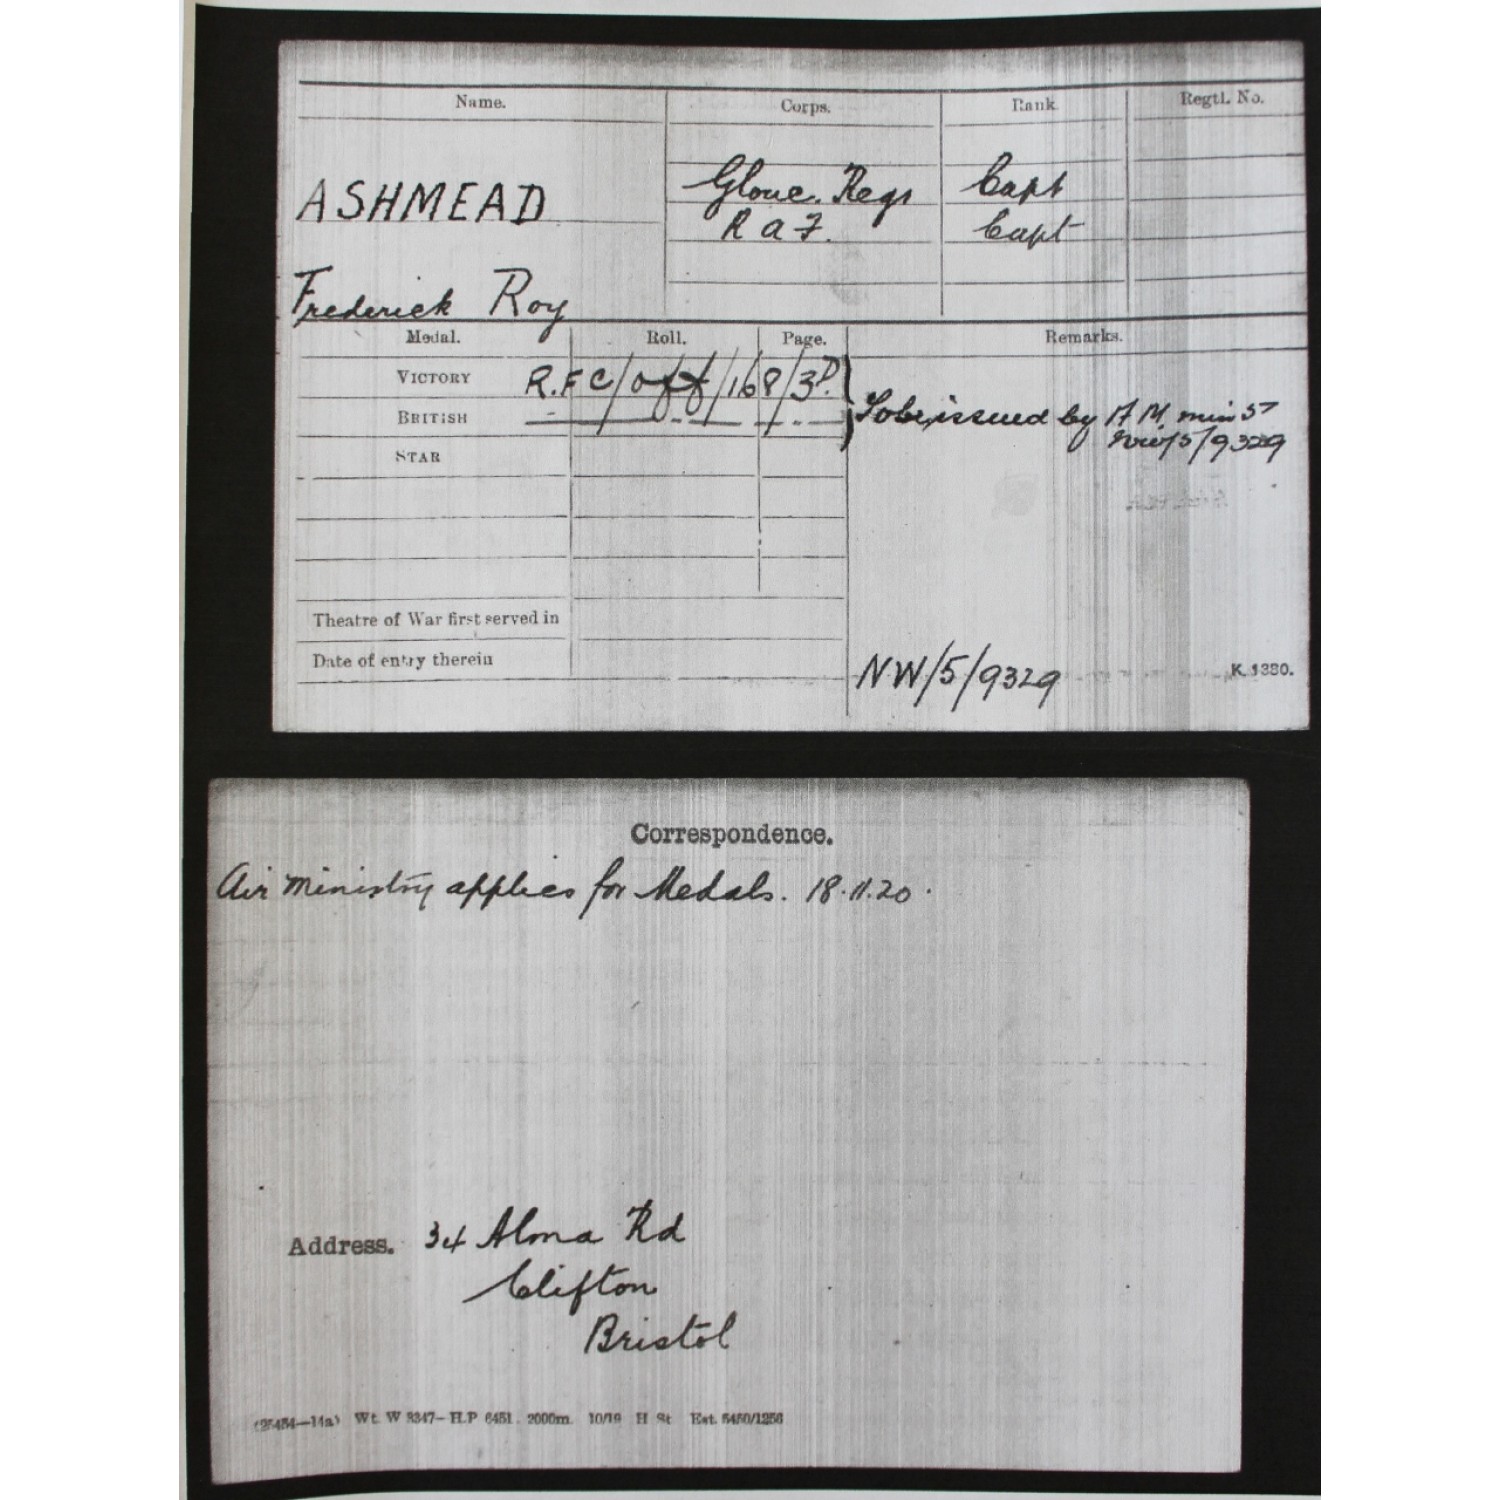 Name. Corps. Rank. Regtl. No.
ASHMEAD Glouc. Regt Capt
R A F. Capt
Frederick Roy
Medal. Roll. Page. Remarks.
VICTORY R.F C/Off/168/3D.
BRITISH —"— " — To be issued by A M, min 5
NW/5/9329
STAR
Theatre of War first served in
Date of entry therein
NW/5/9329 K. 1380.
Correspondence.
Air Ministry applies for Medals. 18.11.20.
Address. 34 Alma Rd
Clifton
Bristol
(25454—14a) Wt. W 3347—H.P 6451. 2000m. 10/19 H St Est. 5450/1256